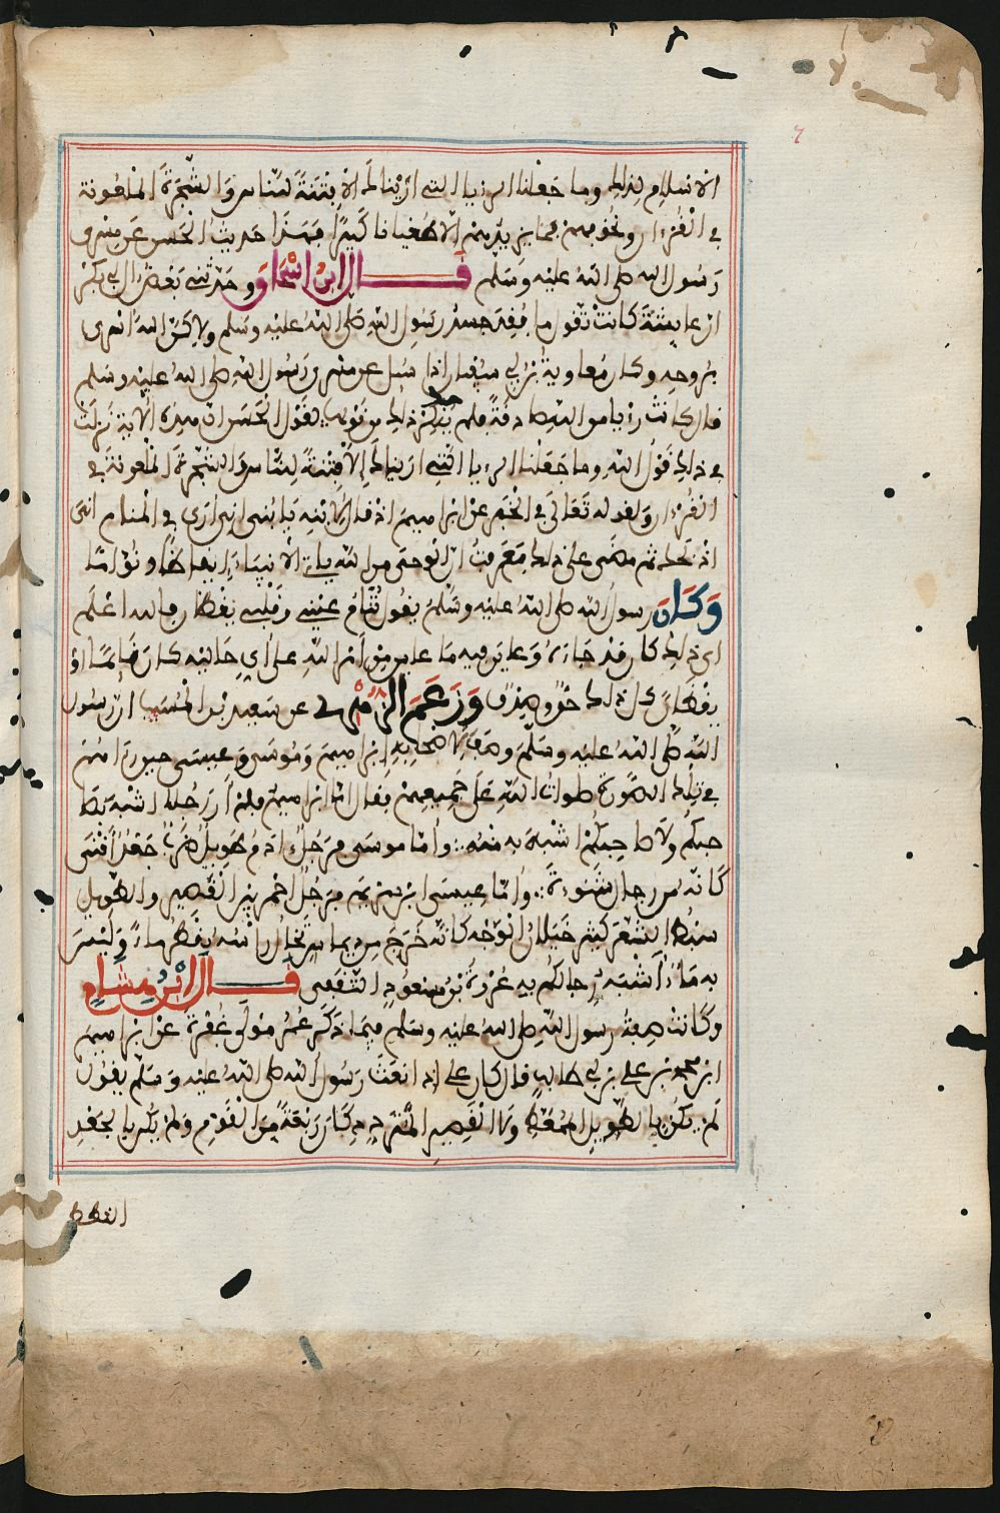 الاسلام لذلك وما جعلنا الريا التى اريناك الا فتنة للناس والشجرة الملعونة
في القرءان ونخوفهم فما يزيدهم الا طغيانا كبيرا فهذا حديث الحسن عن مسرى
رسول الله صلى الله عليه وسلم قال ابن اسحاق وحدثني بعض ءال ابي بكر
ان عايشة كانت تقول ما فقد جسد رسول الله صلى الله عليه وسلم ولاكن الله اسرى
بروحه وكان معاوية بن ابي سفيان اذا سئل عن مسرى رسول الله صلى الله عليه وسلم
قال كانت رءيا من الله صادقة فلم ينكر ذلك من قولهما لقول الحسن ان هذه الاية نزلت
في ذلك قول الله وما جعلنا الريا التي اريناك الا فتنة للناس والشجرة الملعونة في
القرءان ولقوله تعالى في الخبر عن ابراهيم اذ قال لابنه يا بني اني ارى في المنام اني
اذبحك ثم مضى على ذلك فعرفت ان الوحي من الله ياتي الانبياء ايقاظا ونواما
وكان رسول الله صلى الله عليه وسلم يقول تنام عيني وقلبي يقظان فالله اعلم
اي ذلك كان قد جاءه وعاين فيه ما عاين من امر الله على اي حاليه كان نايما او
يقظان كل ذلك حق وصدق وزعم الزهري عن سعيد بن المسيب ان رسول
الله صلى الله عليه وسلم وصف لاصحابه ابراهيم وموسى وعيسى حين رءاهم
في تلك الصورة صلوات الله على جميعهم فقال اما ابراهيم فلم ار رجلا اشبه بصا
حبكم ولا صاحبكم اشبه به منه واما موسى فرجل ءادم طويل ضرب جعد اقنى
كانه من رجال شنوءة واما عيسى ابن مريم فرجل احمر بين القصير والطويل
سبط الشعر كثير خيلان الوجه كانه خرج من ديماس تخال راسه يقطر ماء وليس
به ماء اشبه رجالكم به عروة بن مسعود الثقفى قال ابن هشام
وكانت صفة رسول الله صلى الله عليه وسلم فيما ذكر عمر مولى غفرة عن ابراهيم
ابن محمد بن علي بن ابي طالب قال كان علي اذا نعت رسول الله صلى الله عليه وسلم يقول
لم يكن بالطويل الممغط ولا القصير المتردد كان ربعة من القوم ولم يكن بالجعد
القطط